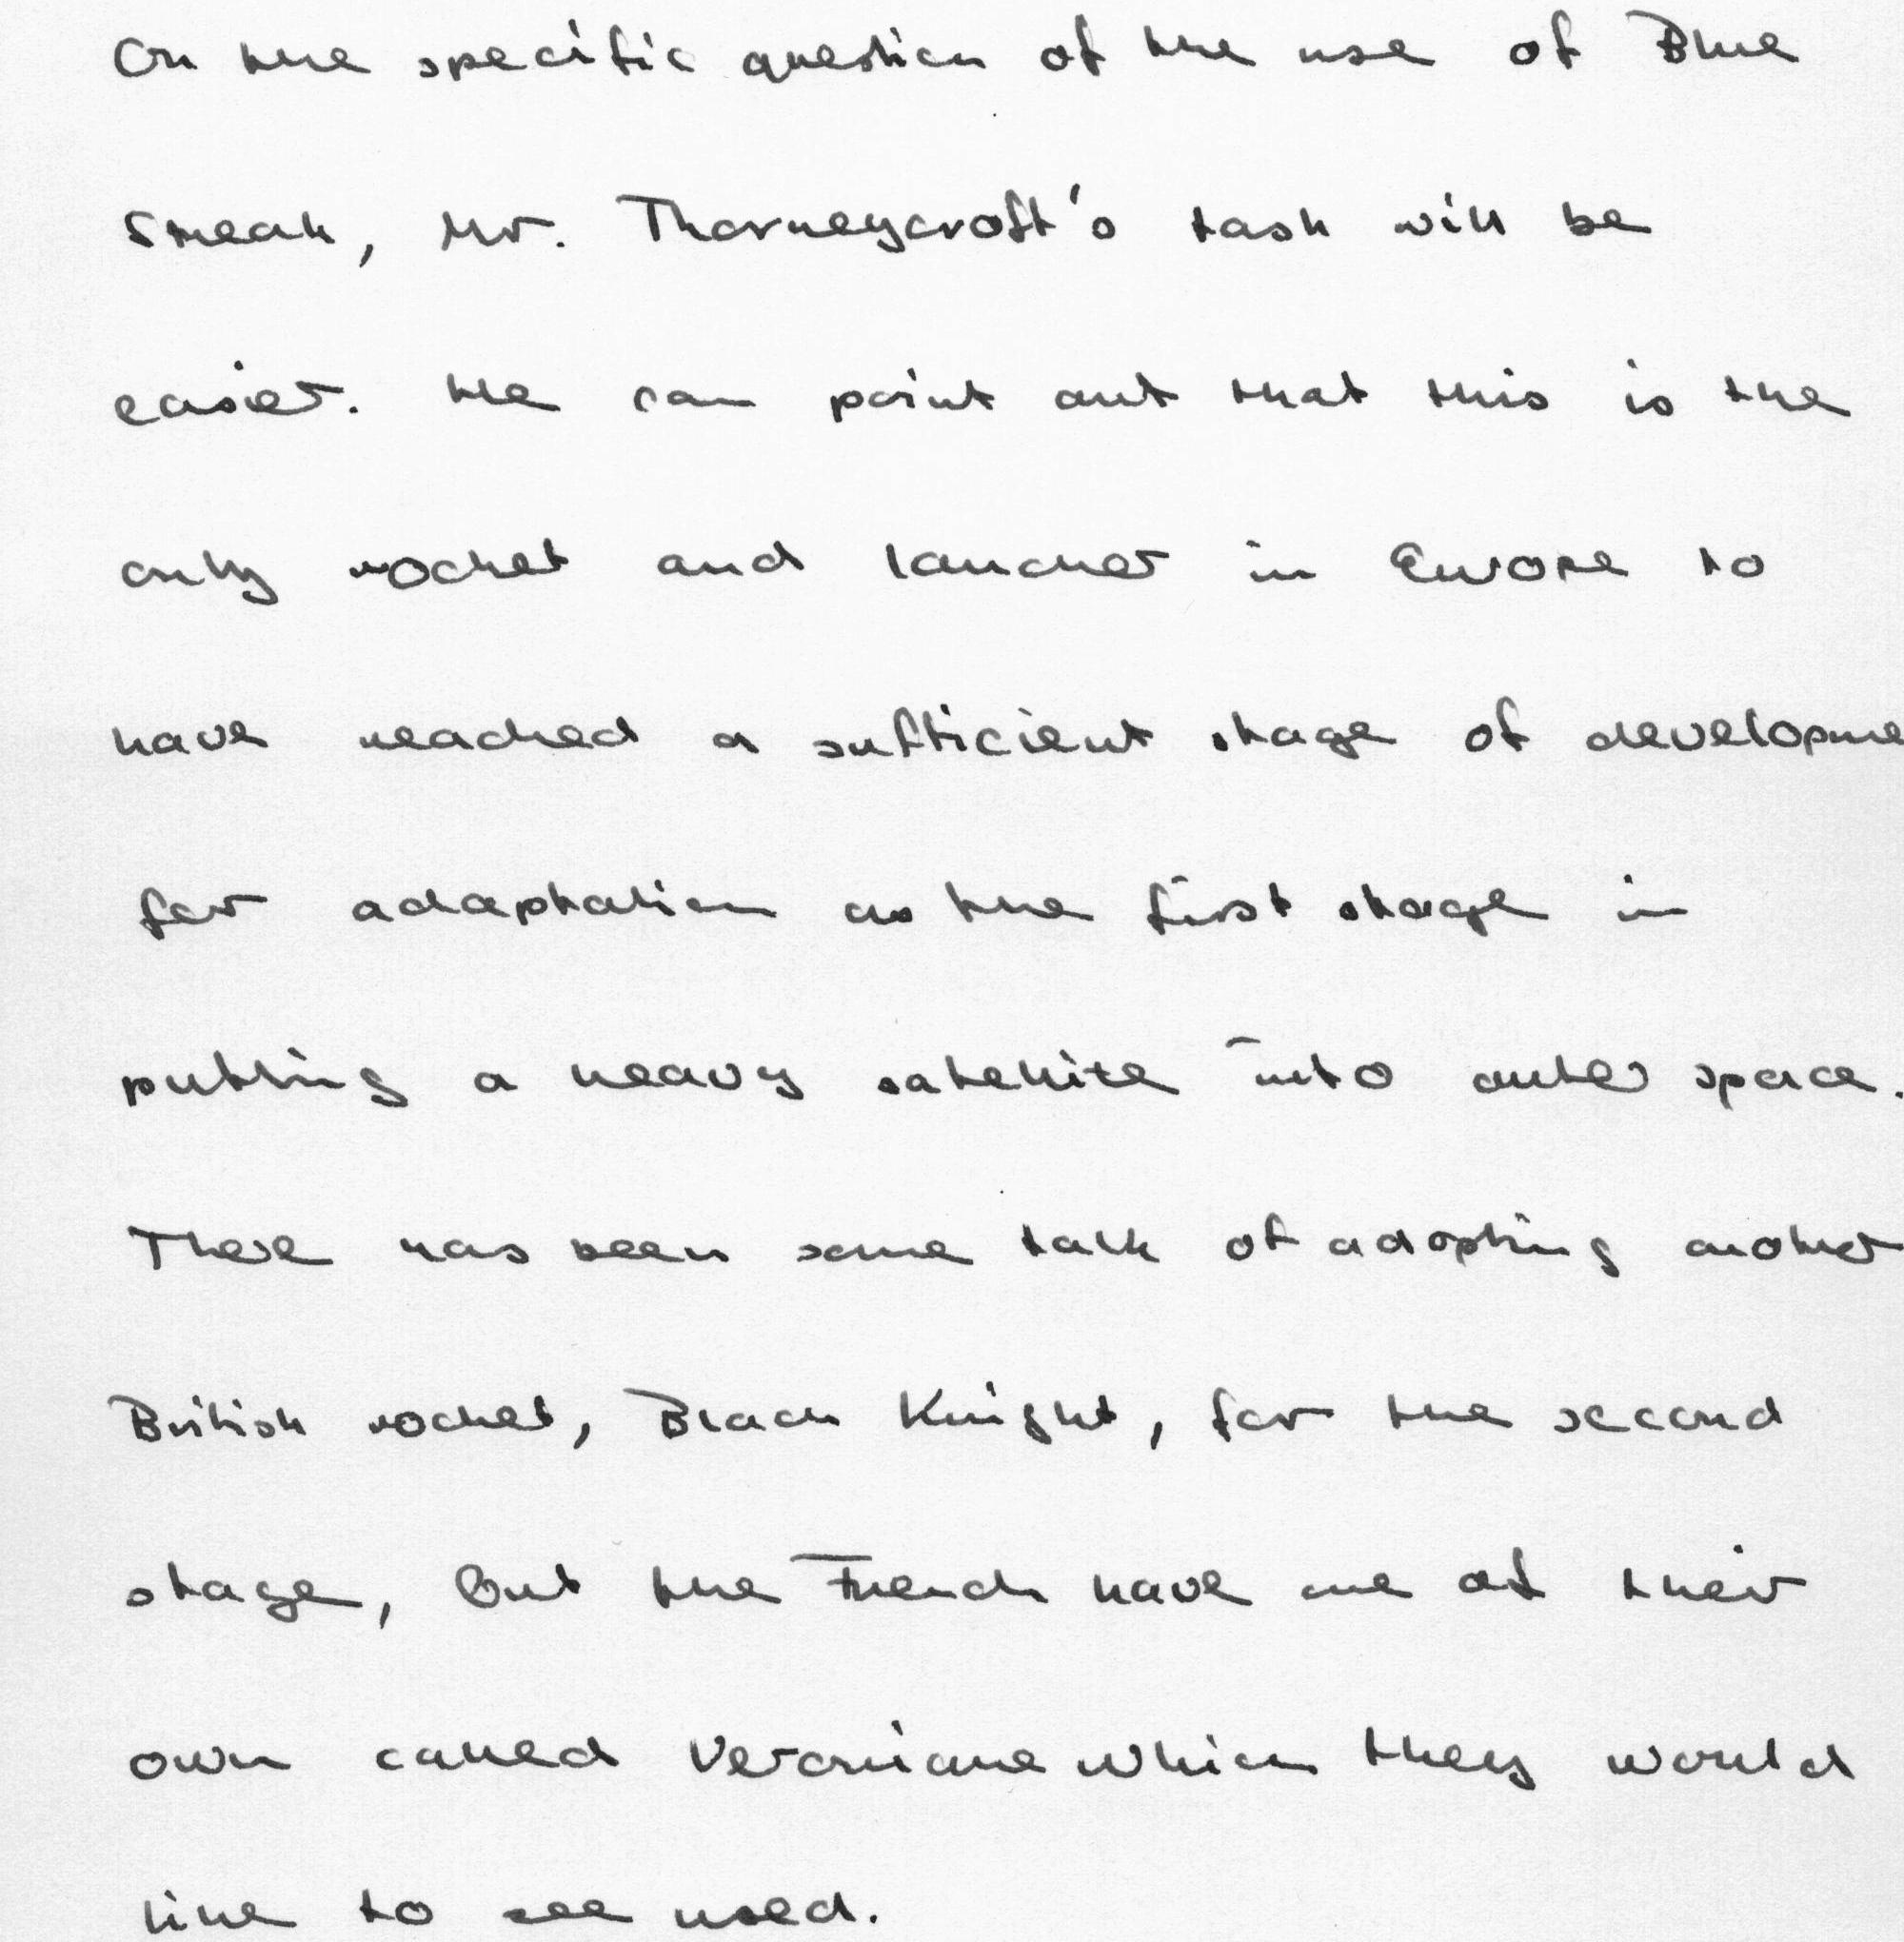 On the specific question of the use of Blue
Streak, Mr. Thorneycroft's task will be
easier. He can point out that this is the
only rocket and launcher in Europe to
have reached a sufficient stage of developme
for adaptation as the first stage in
putting a heavy satellite into outer space.
There has been some talk of adopting another
British rocket, Black Knight, for the second
stage, but the French have one of their
own called Veronique which they would
like to see used.